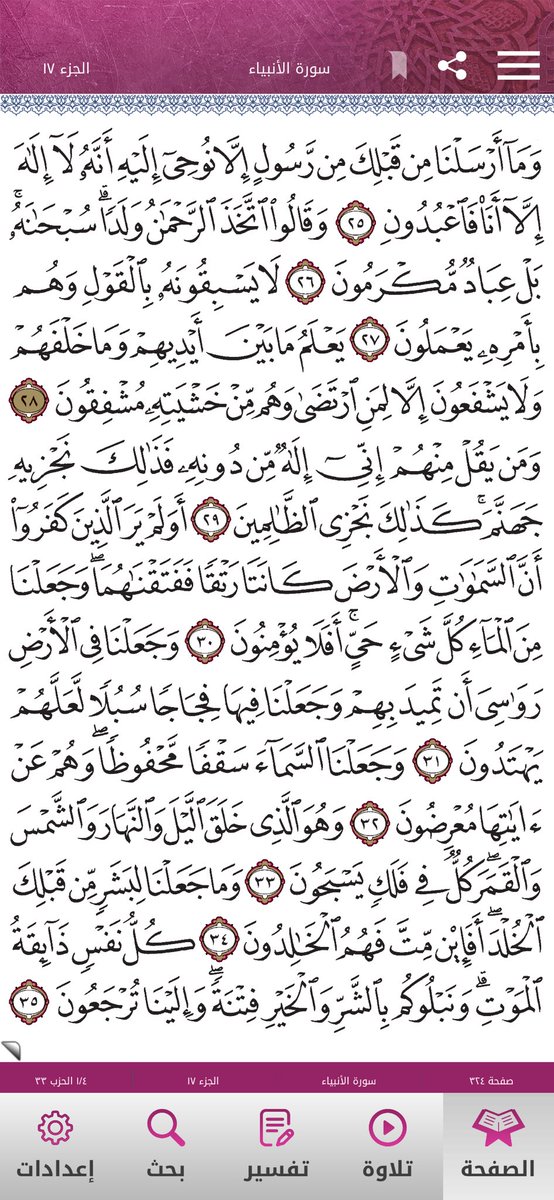 الجزء ١٧ سورة الأنبياء
وَمَآ أَرْسَلْنَا مِن قَبْلِكَ مِن رَّسُولٍ إِلَّا نُوحِىٓ إِلَيْهِ أَنَّهُۥ لَآ إِلَٰهَ
إِلَّآ أَنَا۠ فَٱعْبُدُونِ ٢٥ وَقَالُوا۟ ٱتَّخَذَ ٱلرَّحْمَٰنُ وَلَدًا ۗ سُبْحَٰنَهُۥ ۚ
بَلْ عِبَادٌ مُّكْرَمُونَ ٢٦ لَا يَسْبِقُونَهُۥ بِٱلْقَوْلِ وَهُم
بِأَمْرِهِۦ يَعْمَلُونَ ٢٧ يَعْلَمُ مَا بَيْنَ أَيْدِيهِمْ وَمَا خَلْفَهُمْ
وَلَا يَشْفَعُونَ إِلَّا لِمَنِ ٱرْتَضَىٰ وَهُم مِّنْ خَشْيَتِهِۦ مُشْفِقُونَ ٢٨
وَمَن يَقُلْ مِنْهُمْ إِنِّىٓ إِلَٰهٌ مِّن دُونِهِۦ فَذَٰلِكَ نَجْزِيهِ
جَهَنَّمَ ۚ كَذَٰلِكَ نَجْزِى ٱلظَّٰلِمِينَ ٢٩ أَوَلَمْ يَرَ ٱلَّذِينَ كَفَرُوٓا۟
أَنَّ ٱلسَّمَٰوَٰتِ وَٱلْأَرْضَ كَانَتَا رَتْقًا فَفَتَقْنَٰهُمَا ۖ وَجَعَلْنَا
مِنَ ٱلْمَآءِ كُلَّ شَىْءٍ حَىٍّ ۖ أَفَلَا يُؤْمِنُونَ ٣٠ وَجَعَلْنَا فِى ٱلْأَرْضِ
رَوَٰسِىَ أَن تَمِيدَ بِهِمْ وَجَعَلْنَا فِيهَا فِجَاجًا سُبُلًا لَّعَلَّهُمْ
يَهْتَدُونَ ٣١ وَجَعَلْنَا ٱلسَّمَآءَ سَقْفًا مَّحْفُوظًا ۖ وَهُمْ عَنْ
ءَايَٰتِهَا مُعْرِضُونَ ٣٢ وَهُوَ ٱلَّذِى خَلَقَ ٱلَّيْلَ وَٱلنَّهَارَ وَٱلشَّمْسَ
وَٱلْقَمَرَ ۖ كُلٌّ فِى فَلَكٍ يَسْبَحُونَ ٣٣ وَمَا جَعَلْنَا لِبَشَرٍ مِّن قَبْلِكَ
ٱلْخُلْدَ ۖ أَفَإِي۟ن مِّتَّ فَهُمُ ٱلْخَٰلِدُونَ ٣٤ كُلُّ نَفْسٍ ذَآئِقَةُ
ٱلْمَوْتِ ۗ وَنَبْلُوكُم بِٱلشَّرِّ وَٱلْخَيْرِ فِتْنَةً ۖ وَإِلَيْنَا تُرْجَعُونَ ٣٥
صفحة ٣٢٤ سورة الأنبياء الجزء ١٧ ١/٤ الحزب ٣٣
الصفحة تلاوة تفسير بحث إعدادات